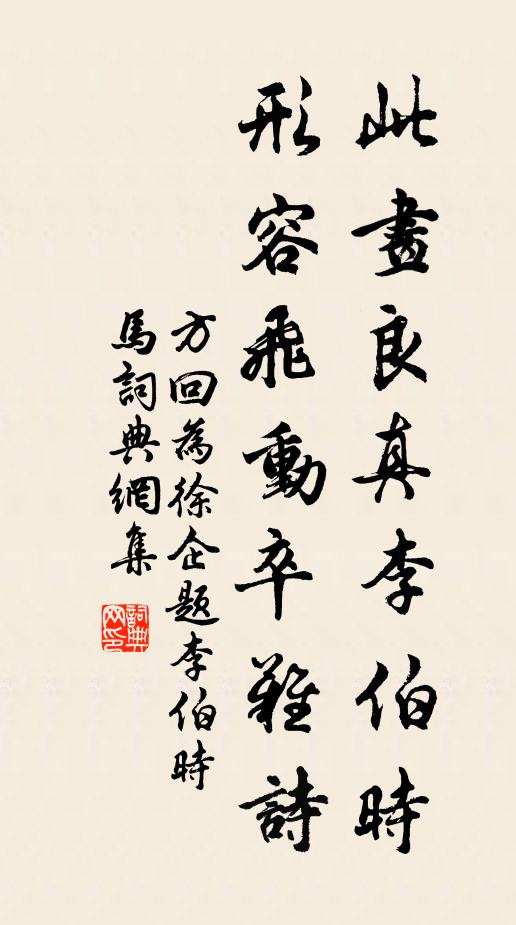 此畫良真李伯時
形容飛動卒難詩
方回為徐企題李伯時
馬詞典網集
詞典網印